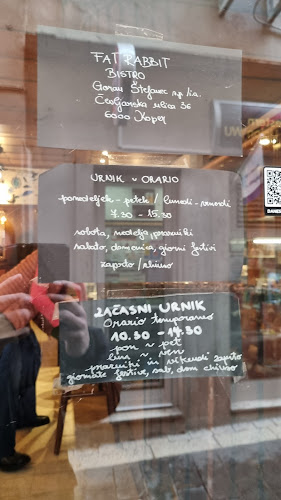 FAT RABBIT
BISTRO
Goran Štefanec s.p.
Čevljarska ulica 36
6000 Koper
URNIK ~ ORARIO
ponedeljek - petek / lunedì - venerdì
7.30 - 15.30
sobota, nedelja, prazniki
sabato, domenica, giorni festivi
zaprto / chiuso
ZAČASNI URNIK
Orario temporaneo
10.30 - 14.30
pon ~ pet
lun ~ ven
prazniki in vikendi zaprto
giornate festive, sab, dom chiuso